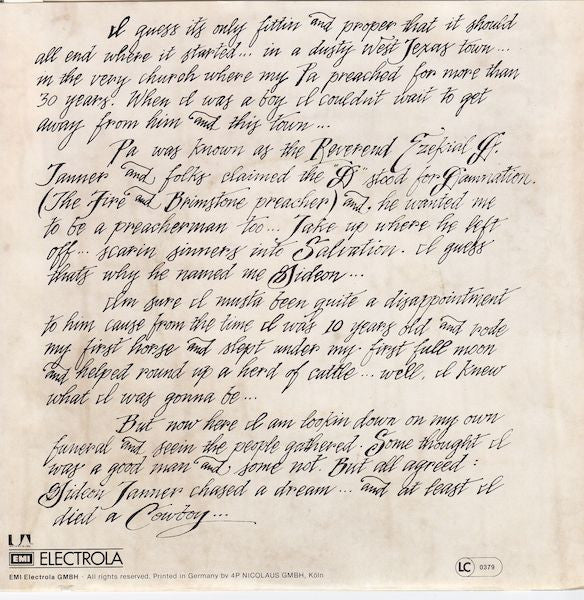 I guess its only fittin and proper that it should
all end where it started... in a dusty west Texas town...
in the very church where my Pa preached for more than
30 years. When I was a boy I couldn't wait to get
away from him and this town...
Pa was known as the Reverend Ezekial D.
Tanner and folks claimed the "D" stood for Damnation.
(The Fire and Brimstone preacher) and he wanted me
to be a preacherman too... Take up where he left
off... scarin sinners into Salvation. I guess
thats why he named me Gideon...
I'm sure I musta been quite a disappointment
to him cause from the time I was 10 years old and rode
my first horse and slept under my first full moon
and helped round up a herd of cattle... well, I knew
what I was gonna be...
But now here I am lookin down on my own
funeral and seein the people gathered. Some thought I
was a good man and some not. But all agreed:
Gideon Tanner chased a dream... and at least I
died a Cowboy...
UA
EMI ELECTROLA
EMI Electrola GMBH · All rights reserved. Printed in Germany by 4P NICOLAUS GMBH, Köln
LC 0379